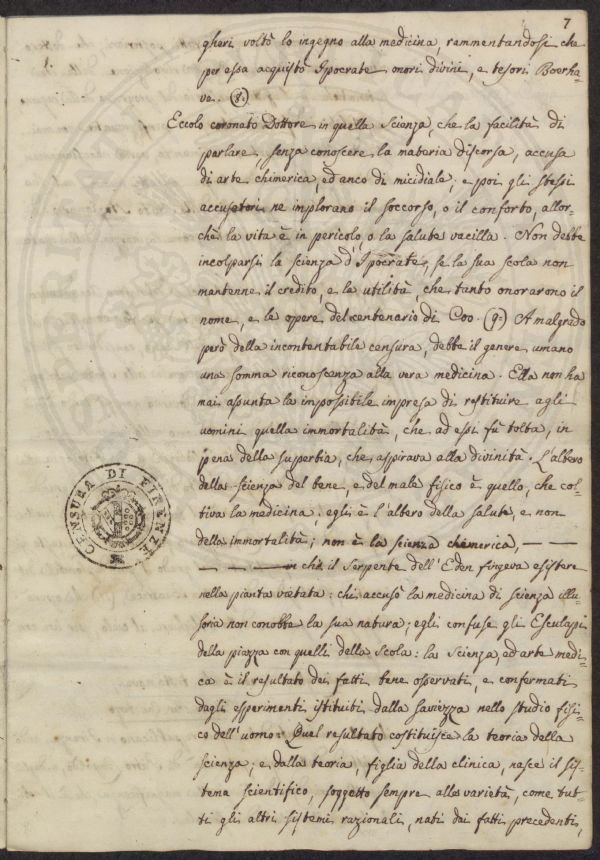 7
gheri voltò lo ingegno alla medicina, rammentandosi che
per essa acquistò Ipocrate onori divini, e tesori Boerha-
ve. (8.)
Eccolo coronato Dottore in quella Scienza, che la facilità di
parlare, senza conoscere la materia discorsa, accusa
di arte chimerica, ed anco di micidiale; e poi gli stessi
accusatori ne implorano il soccorso, o il conforto, allor-
chè la vita è in pericolo, o la salute vacilla. Non debbe
incolparsi la scienza d'Ipocrate, se la sua scola non
mantenne il credito, e la utilità, che tanto onorarono il
nome, e le opere del centenario di Coo. (9.) A malgrado
però della incontentabile censura, debbe il genere umano
una somma riconoscenza alla vera medicina. Ella non ha
mai assunta la impossibile impresa di restituire agli
uomini quella immortalità, che ad essi fù tolta, in
pena della superbia, che aspirava alla divinità. L'albero
della scienza del bene, e del male fisico è quello, che col-
tiva la medicina; egli è l'albero della salute, e non
della immortalità; non è la scienza chimerica, — —
— — — che il Serpente dell'Eden fingeva esistere
nella pianta vietata: chi accusò la medicina di scienza illu-
soria non conobbe la sua natura; egli confuse gli Esculapi
della piazza con quelli della Scola: la Scienza, ed arte medi-
ca è il resultato dei fatti bene osservati, e confermati
dagli esperimenti istituiti dalla saviezza nello studio fisi-
co dell'uomo: Quel resultato costituisce la teoria della
scienza; e dalla teoria, figlia della clinica, nasce il sis-
tema scientifico, soggetto sempre alle varietà, come tut-
ti gli altri sistemi razionali, nati dai fatti precedenti,
CENSURA DI FIRENZE